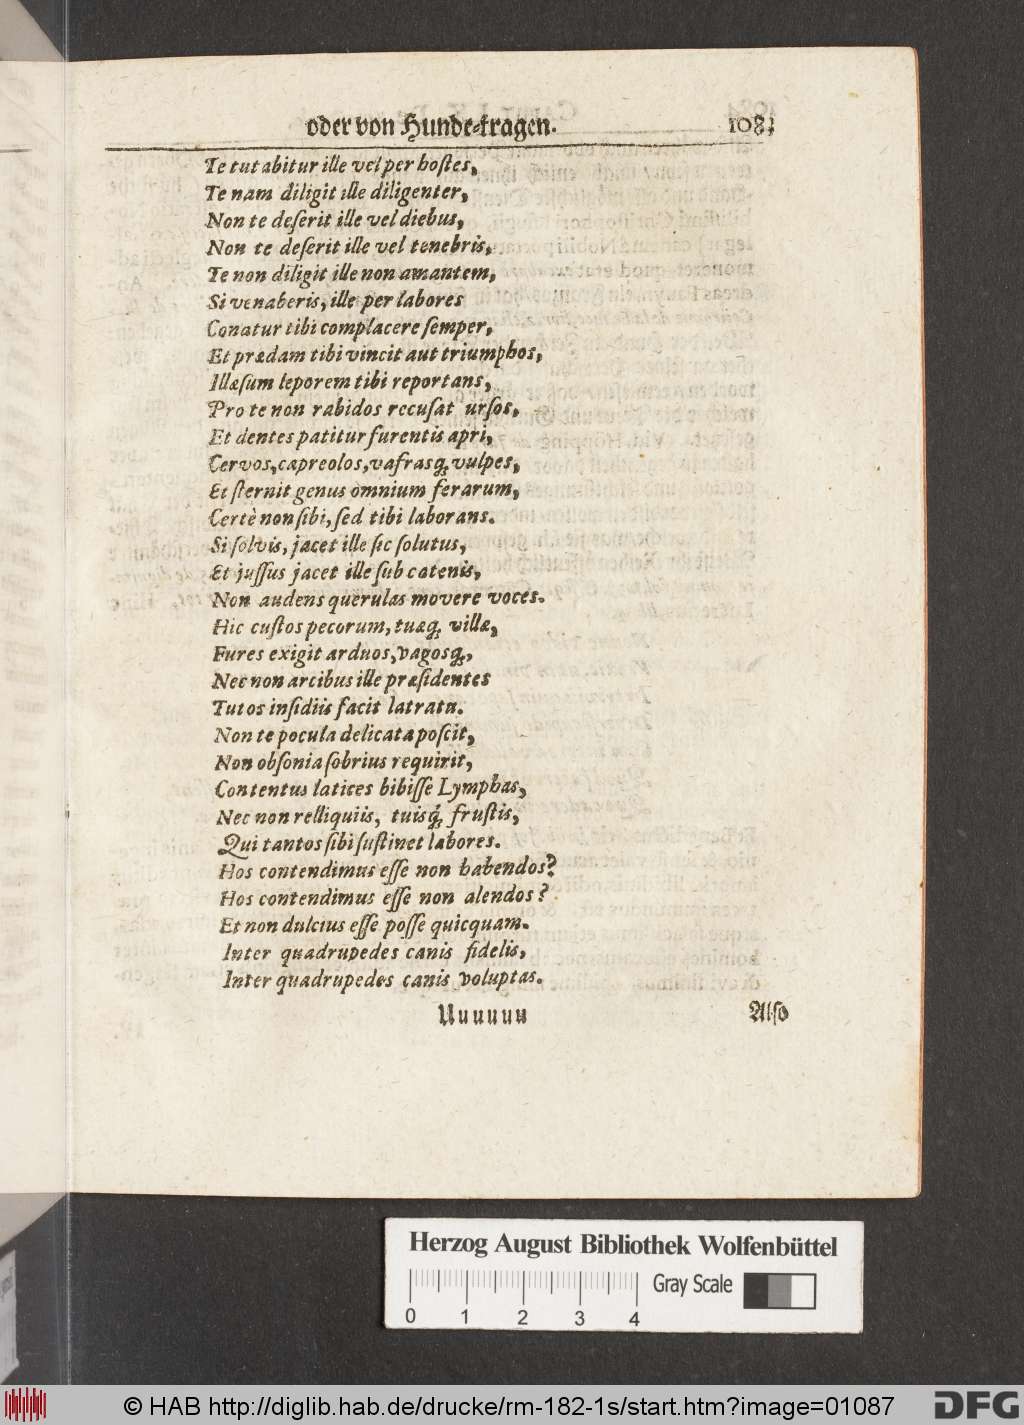 oder von Hunde-tragen. 1085
Te tutabitur ille vel per hostes,
Te nam diligit ille diligenter,
Non te deserit ille vel diebus,
Non te deserit ille vel tenebris,
Te non diligit ille non amantem,
Si venaberis, ille per labores
Conatur tibi complacere semper,
Et prædam tibi vincit aut triumphos,
Illæsum leporem tibi reportans,
Pro te non rabidos recusat ursos,
Et dentes patitur furentis apri,
Cervos, capreolos, vafrasq́; vulpes,
Et sternit genus omnium ferarum,
Certè non sibi, sed tibi laborans.
Si solvis, jacet ille sic solutus,
Et jussus jacet ille sub catenis,
Non audens querulas movere voces.
Hic custos pecorum, tuæq́; villæ,
Fures exigit arduos, vagosq́;,
Nec non arcibus ille præsidentes
Tutos insidiis facit latratu.
Non te pocula delicata poscit,
Non obsonia sobrius requirit,
Contentus latices bibisse Lymphas,
Nec non relliquiis, tuisq́; frustis,
Qui tantos sibi sustinet labores.
Hos contendimus esse non habendos?
Hos contendimus esse non alendos?
Et non dulcius esse posse quicquam.
Inter quadrupedes canis fidelis,
Inter quadrupedes canis voluptas.
Uuuuuu Also
Herzog August Bibliothek Wolfenbüttel
Gray Scale
0 1 2 3 4
© HAB http://diglib.hab.de/drucke/rm-182-1s/start.htm?image=01087
DFG